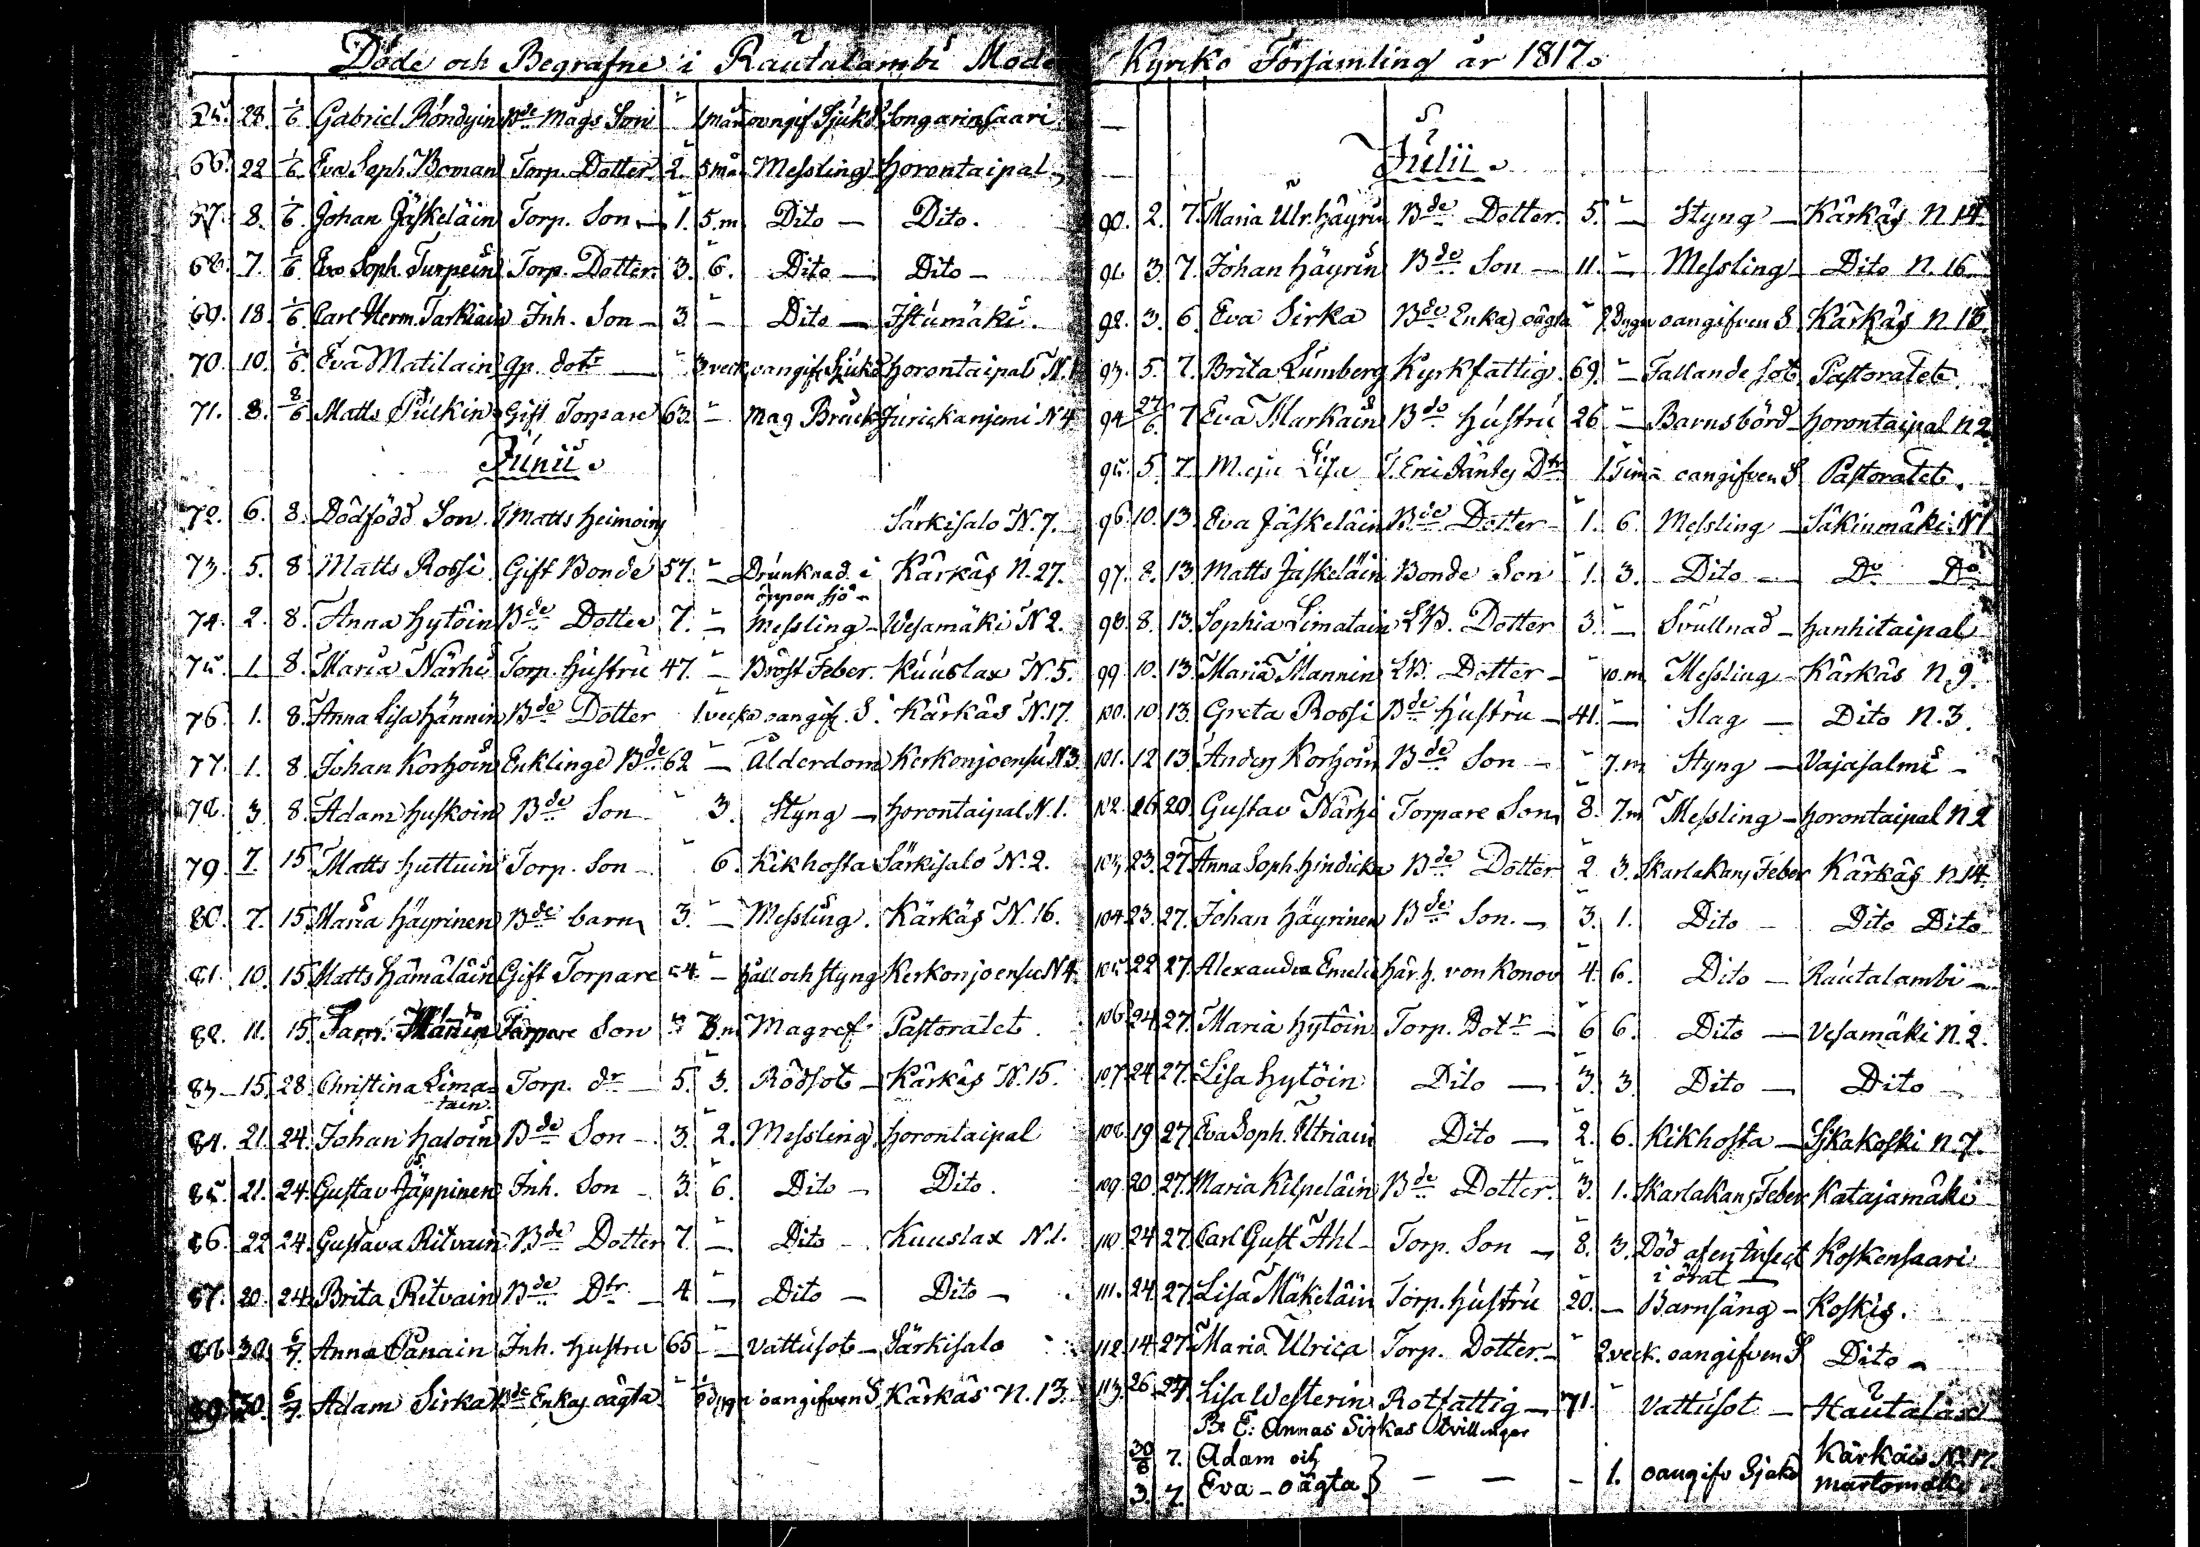 Döde och Begrafne i Rautalambi Moder
28. 1/6 Gabriel Röndyin Bde Mågs Son 1 mån oangif Sjukd Songarinsaari
66. 22 1/6 Eva Soph. Boman Torp. Dotter 2. 5 må Messling Horontaipal
67. 8. 1/6 Johan Jäskeläin Torp. Son — 1. 5.m Dito — Dito.
68. 7. 1/6 Eva Soph. Turpein Torp. Dotter. 3. 6. Dito — Dito —
69. 18. 1/6 Carl Herm. Tarkiain Inh. Son — 3. — Dito — Istumäki.
70. 10. 1/6 Eva Matilain gp. dotr — 3 veck. oangif. Sjukd Horontaipal N. 1
71. 8. 2/6 Matts Pulkin Gift Torpare 63. — Mag Bråck N 4
Junii
72. 6. 8. Dödfödd Son. T. Matts Heimoins Särkisalo N. 7.
73. 5. 8 Matts Rossi Gift Bonde 57. — Drunknad i Kärkäs N. 27.
öppen sjö —
74. 2. 8. Anna Hytöin Bde Dotter 7. — Messling — Wesamäki N 2.
75. 1. 8. Maria Närhi Torp. Hustru 47. — Bröst Feber. Kuuslax N. 5.
76. 1. 8. Anna Lisa Hännin Bde Dotter 1. vecka oangif. S. Kärkäs N. 17.
77. 1. 8. Johan Korhoin Enkling Bde 62 — Ålderdom Kerkonjoensu N 3.
78. 3 8. Adam Huskoin Bde Son 3. Styng — Horontaipal N. 1.
79 7. 15 Matts Huttuin Torp. Son — 6. Kikhosta Särkisalo N. 2.
80. 7. 15. Maria Häyrinen Bde barn 3. — Messling. Kärkäs N. 16.
81. 10. 15 Matts Hämäläin Gift Torpare 54. — Håll och Styng Kerkonjoensu N 4.
82. 11. 15. Torpare Son Magref Pastoratet.
83 — 15. 28. Christina Lima- Torp. dr — 5. 3. Rödsot — Kärkäs N. 15.
tain.
84. 21. 24. Johan Haloin Bde Son — 3. 2. Messling. Horontaipal
85. 21. 24. Gustav Jäppinen Inh. Son — 3. 6. Dito — Dito.
86. 22 24. Gustava Ritvain Bde Dotter 7. — Dito — Kuuslax N. 1.
87. 20. 24. Brita Ritvain Bde Dtr — 4 — Dito — Dito —
88 30. 6/7. Anna Panain Inh. Hustru 65 — Vattusot — Särkisalo
89. 30. 6/7. Adam Sirka Bde Enkas oägta dygn oangifven S. Kärkäs N. 13.
Kyrko Församling år 1817.
Julii
90. 2. 7. Maria Ulr. Häyrin Bde Dotter. 5. — Styng — Kärkäs N. 14.
91. 3. 7. Johan Häyrin Bde Son — 11. — Messling — Dito N. 16
92. 3. 6. Eva Sirka Bde Enkas oägta dygn oangifven S. Kärkäs N. 13.
93. 5. 7. Brita Lumberg Kyrkfattig. 69. — Fallande sot Pastoratet.
94 27/6. 7 Eva Markain Bde Hustru 26 — Barnsbörd — Horontaipal N 2
95. 5. 7. Maja Lisa Dtr 1. Tima oangifven S Pastoratet.
96. 10. 13. Eva Jäskeläin Bde Dotter — 1. 6. Messling — Säkinmäki N 1
97. 8. 13. Matts Jäskeläin Bonde Son 1. 3. Dito — Do Do
98. 8. 13. Sophia Limatain LB. Dotter 3. — Svullnad — Hanhitaipal
99. 10. 13. Maria Mannin LB. Dotter — 10. m Messling — Kärkäs N. 9.
100. 10 13. Greta Rossi Bde Hustru — 41. — Slag — Dito N. 3.
101. 12 13. Anders Korhoin Bde Son — 7. m Styng — Vajasalmi —
102. 16 20 Gustav Närhi Torpare Son 8. 7. m Messling — Horontaipal N 2
103 23. 27 Anna Soph. Hindicka Bde Dotter 2 3. Skarlakans Feber Kärkäs N 14.
104. 23. 27. Johan Häyrinen Bde Son. — 3. 1. Dito — Dito Dito
105 22 27. Alexandra Emelie Här. h. von Konov 4. 6. Dito — Rautalambi —
106 24 27. Maria Hytöin Torp. Dotr — 6 6. Dito — Vesamäki N. 2.
107 24 27. Lisa Hytöin Dito — 3. 3 Dito — Dito —
108. 19 27 Eva Soph. Utriain Dito — 2. 6. Kikhosta — Sikakoski N. 7.
109. 20 27. Maria Kilpeläin Bde Dotter. 3. 1. Skarlakans Feber Katajamäki
110. 24 27. Carl Gust Ahl — Torp. Son — 8. 3. Död af en insect Koskensaari
i örat —
111. 24 27 Lisa Mäkeläin Torp. Hustru 20. — Barnsäng — Koskis.
112. 14 27 Maria Ulrica Torp. Dotter. — 2 veck. oangifven S Dito —
113. 26 27 Lisa Westerin Rotfattig — 71. Vattusot —
B. E: Annas Sirkas tvillingar
30/6 7. Adam och Kärkäis N: 17.
3. 7. Eva — oägta } — — — 1. oangifv Sjukd Martomäki